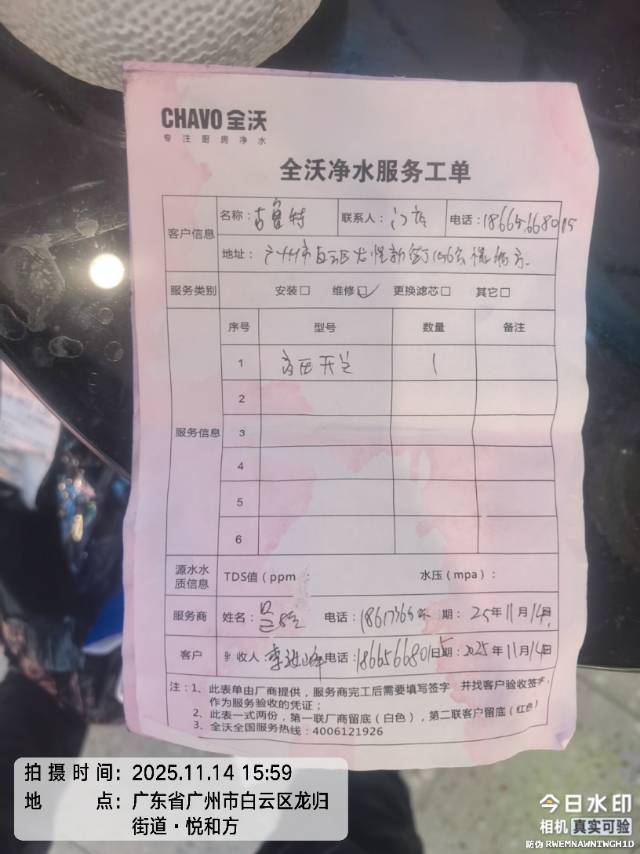 CHAVO 全沃
专注厨房净水
全沃净水服务工单
客户信息
名称：吉鲁特 联系人：门店 电话：18665668015
地址：广州市白云区
服务类别 安装□ 维修☑ 更换滤芯□ 其它□
服务信息
序号 型号 数量 备注
1 高压开关 1
2
3
4
5
6
源水水质信息 TDS值（ppm ： 水压（mpa）：
服务商 姓名： 电话： 期：25年11月14日
客户 收人： 电话：18665668015 日期：2025年11月14日
注：1、此表单由厂商提供，服务商完工后需要填写签字 并找客户验收签字
作为服务验收的凭证；
2、此表一式两份，第一联厂商留底（白色），第二联客户留底（红色）
3、全沃全国服务热线：4006121926
拍摄时间：2025.11.14 15:59
地点：广东省广州市白云区龙归
街道·悦和方
今日水印
相机 真实可验
防伪 RWEMNAWNTWGH1D